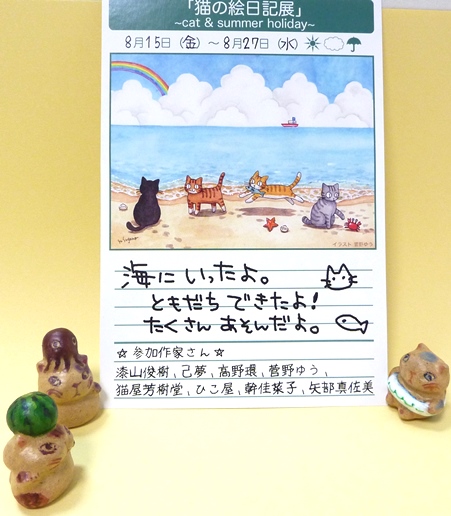 「猫の絵日記展」
~cat & summer holiday~
8月15日（金）～8月27日（水）
イラスト 菅野ゆう
海に いったよ。
ともだち できたよ！
たくさん あそんだよ。
☆ 参加作家さん ☆
漆山俊樹、己夢、高野環、菅野ゆう、
猫屋芳樹堂、ひこ屋、幹佳菜子、矢部真佐美